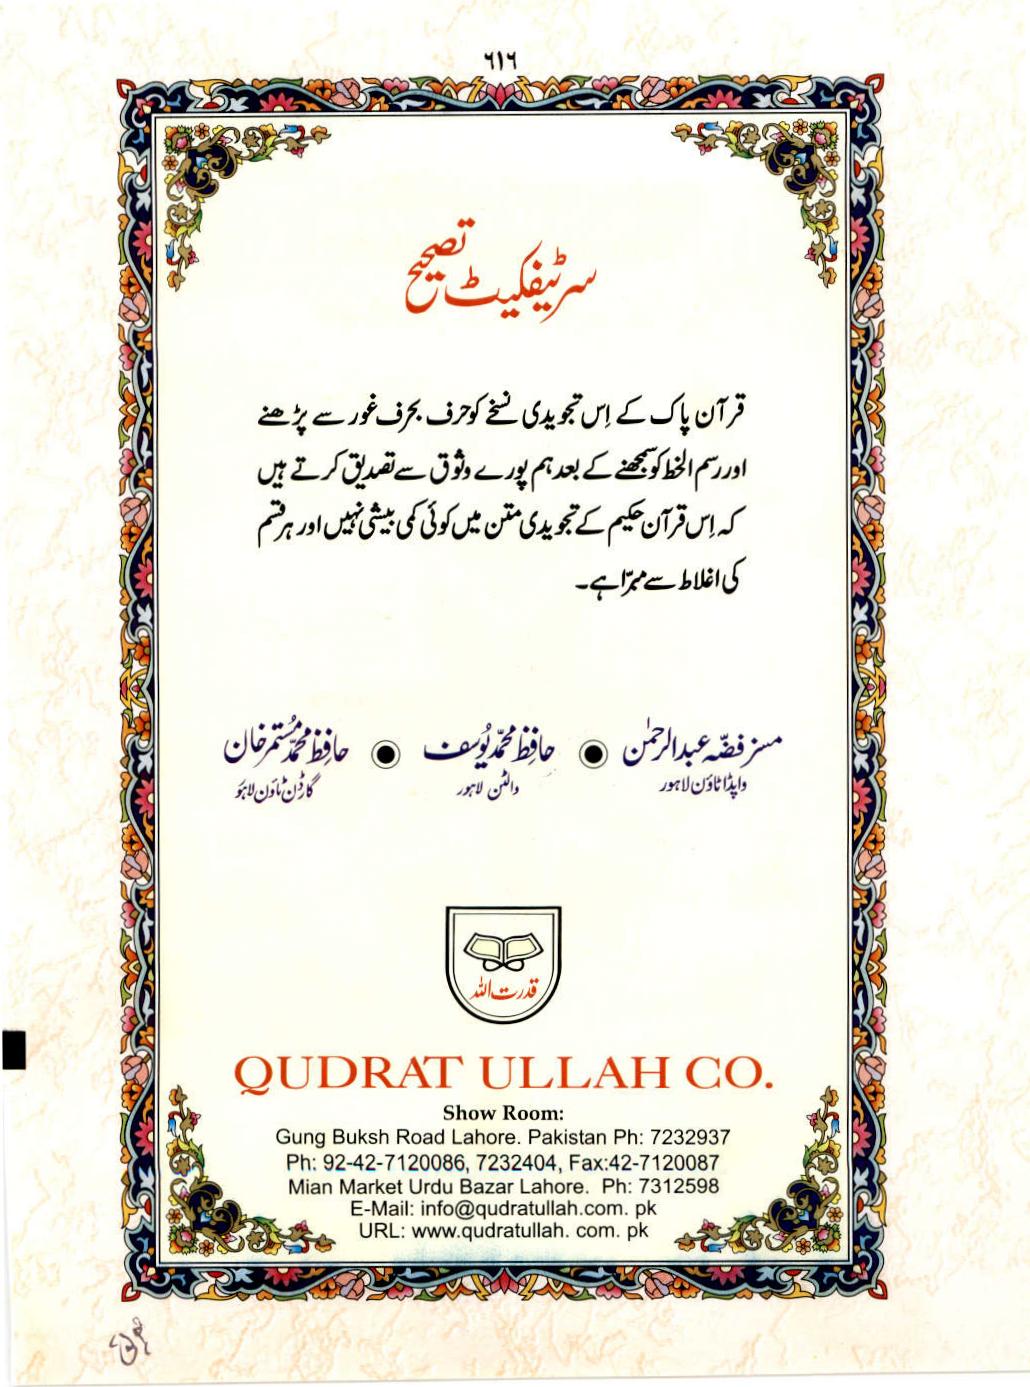 ٦١٦
سرٹیفکیٹ تصحیح
قرآن پاک کے اِس تجویدی نسخے کو حرف بحرف غور سے پڑھنے
اور رسم الخط کو سمجھنے کے بعد ہم پورے وثوق سے تصدیق کرتے ہیں
کہ اِس قرآن حکیم کے تجویدی متن میں کوئی کمی بیشی نہیں اور ہر قسم
کی اغلاط سے مبرّا ہے۔
مسز فضّہ عبدالرحمٰن ◉ حافِظ محمّد یُوسف ◉ حافِظ محمّد مُستمر خان
واپڈا ٹاؤن لاہور والٹن لاہور گارڈن ٹاؤن لاہور
قدرت اللہ
QUDRAT ULLAH CO.
Show Room:
Gung Buksh Road Lahore. Pakistan Ph: 7232937
Ph: 92-42-7120086, 7232404, Fax:42-7120087
Mian Market Urdu Bazar Lahore. Ph: 7312598
E-Mail: info@qudratullah.com. pk
URL: www.qudratullah. com. pk